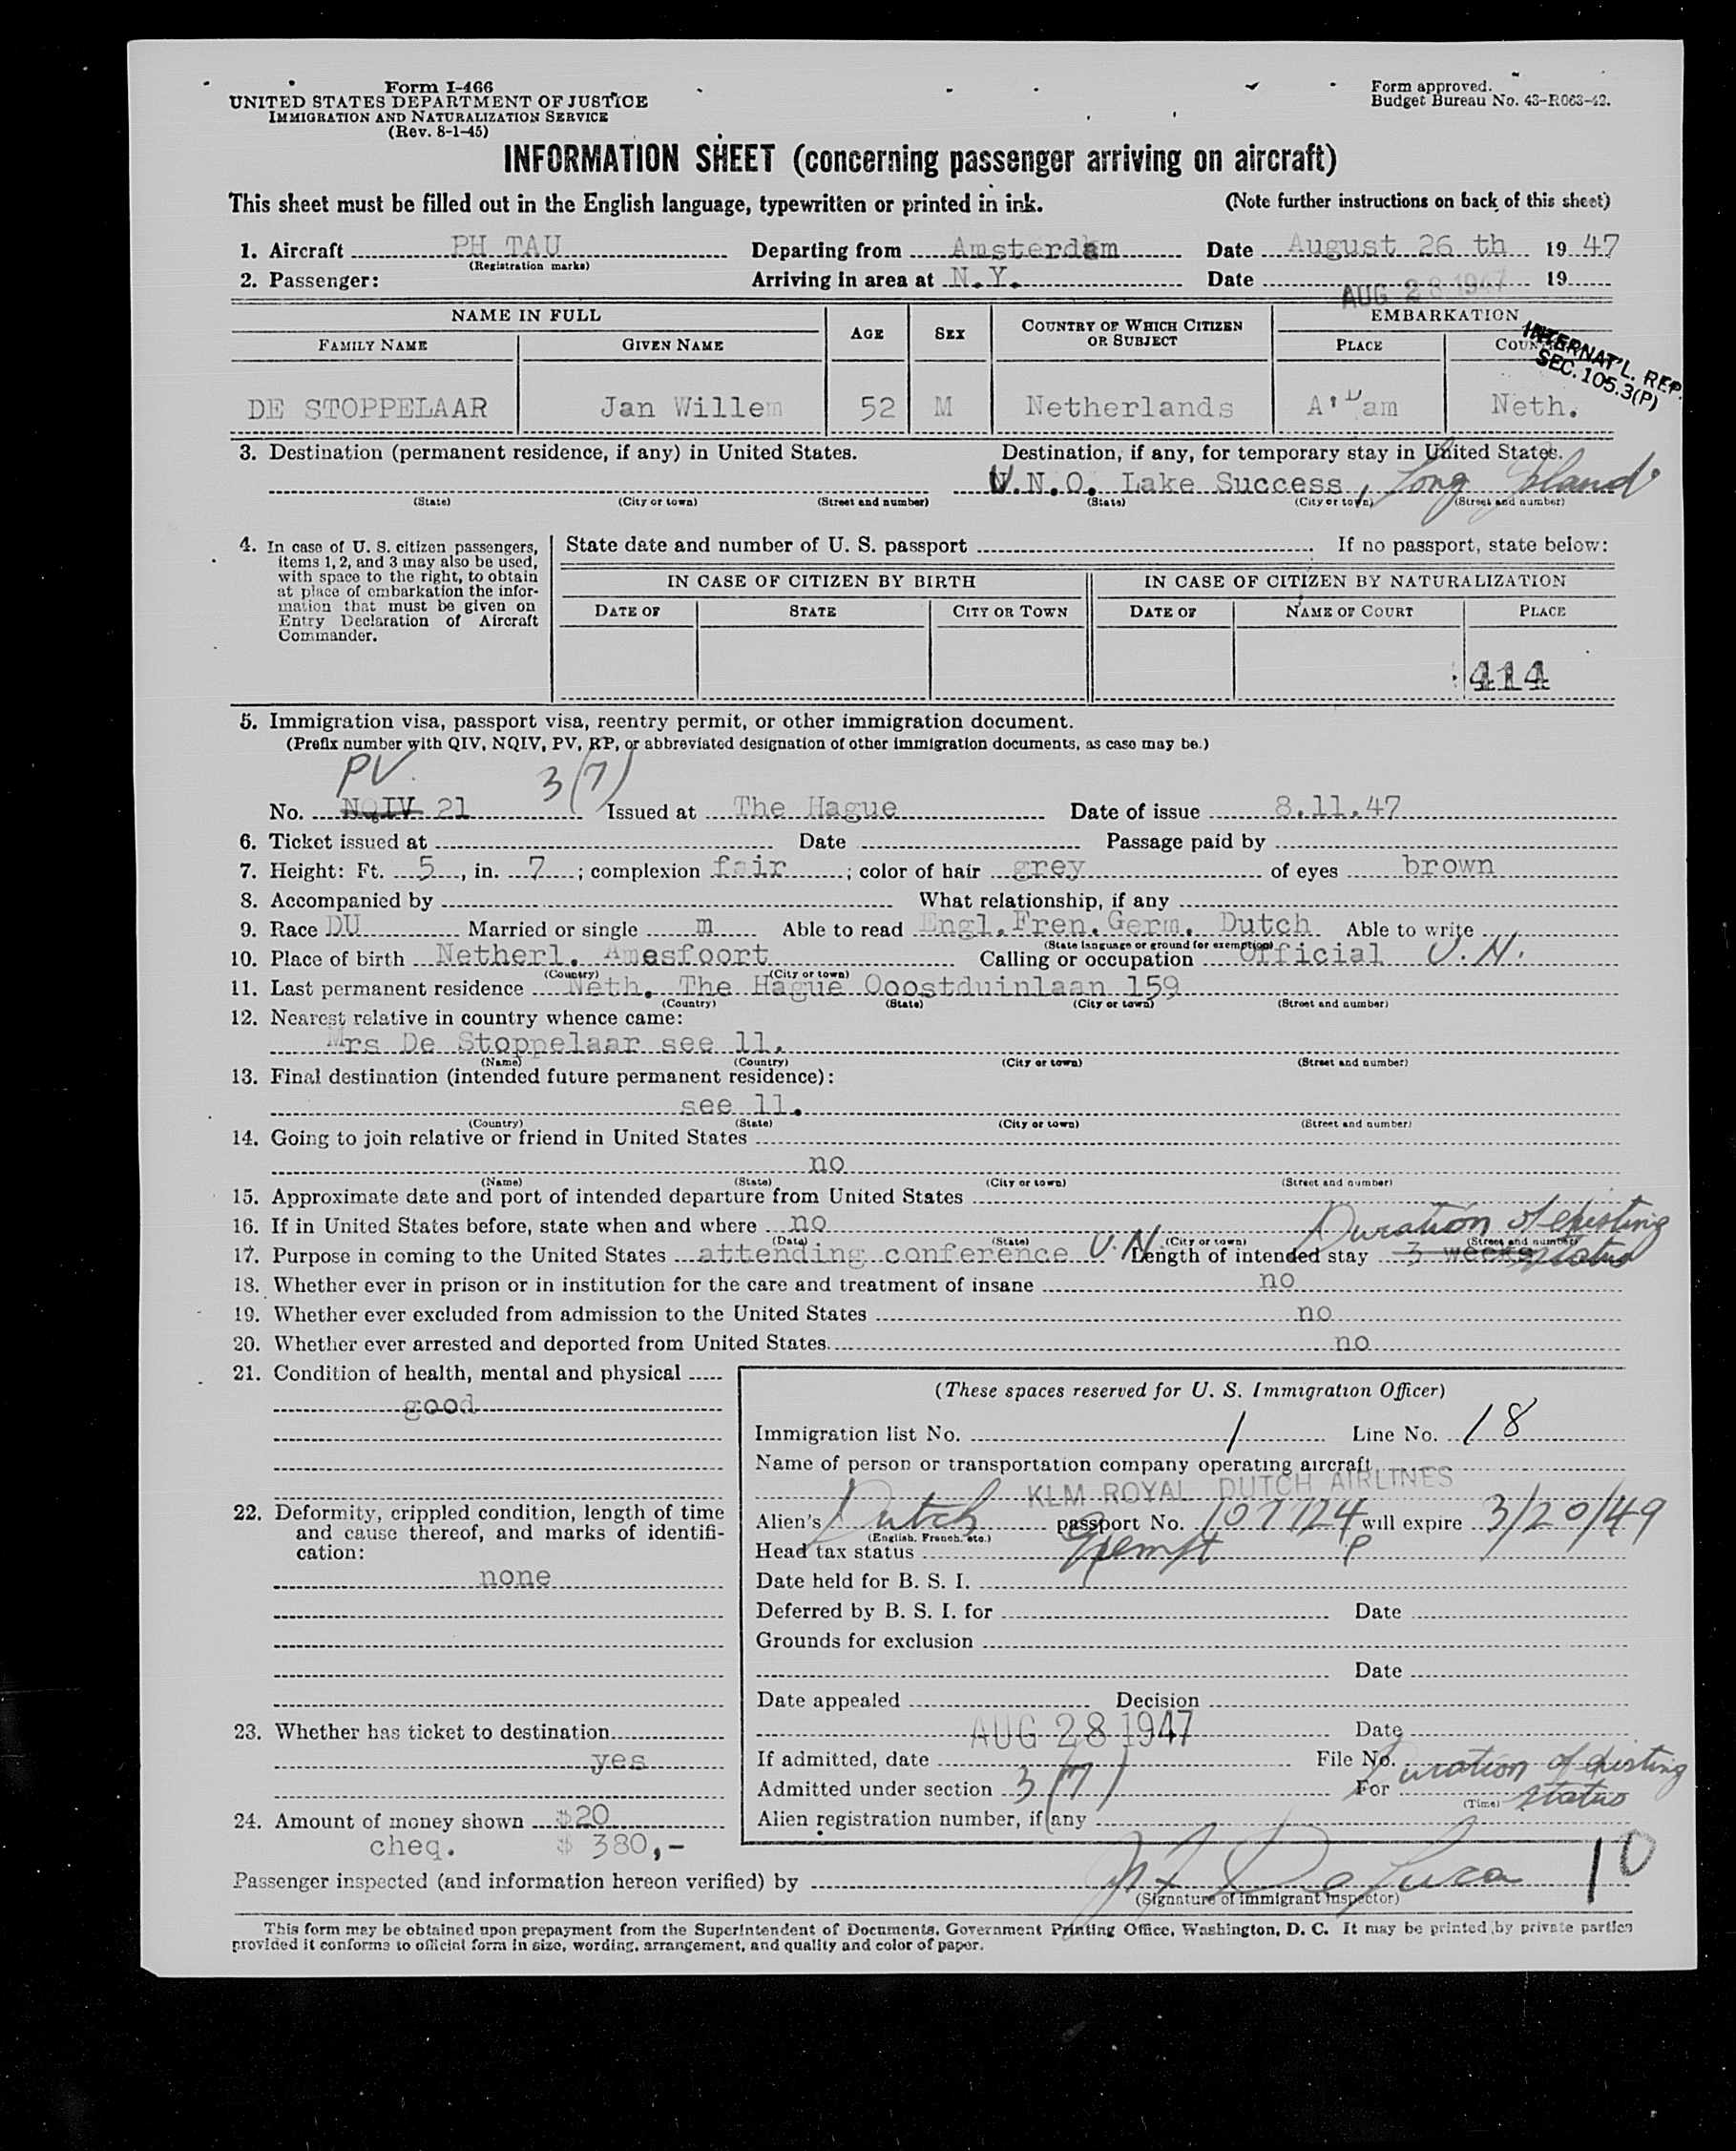 Form I-466
UNITED STATES DEPARTMENT OF JUSTICE
IMMIGRATION AND NATURALIZATION SERVICE
(Rev. 8-1-45)
Form approved.
Budget Bureau No. 43-R063-42.
INFORMATION SHEET (concerning passenger arriving on aircraft)
This sheet must be filled out in the English language, typewritten or printed in ink. (Note further instructions on back of this sheet)
1. Aircraft PH TAU Departing from Amsterdam Date August 26 th 19 47
(Registration marks)
2. Passenger: Arriving in area at N.Y. Date AUG 28 1947 19
NAME IN FULL AGE SEX COUNTRY OF WHICH CITIZEN OR SUBJECT EMBARKATION
FAMILY NAME GIVEN NAME PLACE
INTERNAT'L. REP.
SEC. 105.3(P)
DE STOPPELAAR Jan Willem 52 M Netherlands A'Dam Neth.
3. Destination (permanent residence, if any) in United States. Destination, if any, for temporary stay in United States.
U.N.O. Lake Success, Long Island
(State) (City or town) (Street and number) (State) (City or town) (Street and number)
4. In case of U. S. citizen passengers, items 1, 2, and 3 may also be used, with space to the right, to obtain at place of embarkation the information that must be given on Entry Declaration of Aircraft Commander.
State date and number of U. S. passport If no passport, state below:
IN CASE OF CITIZEN BY BIRTH IN CASE OF CITIZEN BY NATURALIZATION
DATE OF STATE CITY OR TOWN DATE OF NAME OF COURT PLACE
414
5. Immigration visa, passport visa, reentry permit, or other immigration document.
(Prefix number with QIV, NQIV, PV, RP, or abbreviated designation of other immigration documents, as case may be.)
PV 3(7)
No. NQIV 21 Issued at The Hague Date of issue 8.11.47
6. Ticket issued at Date Passage paid by
7. Height: Ft. 5, in. 7; complexion fair; color of hair grey of eyes brown
8. Accompanied by What relationship, if any
9. Race DU Married or single m Able to read Engl. Fren. Germ. Dutch Able to write
(State language or ground for exemption)
10. Place of birth Netherl. Amesfoort Calling or occupation official U.N.
(Country) (City or town)
11. Last permanent residence Neth. The Hague Ooostduinlaan 159
(Country) (State) (City or town) (Street and number)
12. Nearest relative in country whence came:
Mrs De Stoppelaar see 11.
(Name) (Country) (City or town) (Street and number)
13. Final destination (intended future permanent residence):
see 11.
(Country) (State) (City or town) (Street and number)
14. Going to join relative or friend in United States
no
(Name) (State) (City or town) (Street and number)
15. Approximate date and port of intended departure from United States
16. If in United States before, state when and where no Duration of existing
(Date) (State) (City or town) (Street and number)
17. Purpose in coming to the United States attending conference U.N. Length of intended stay 3 weeks status
18. Whether ever in prison or in institution for the care and treatment of insane no
19. Whether ever excluded from admission to the United States no
20. Whether ever arrested and deported from United States no
21. Condition of health, mental and physical
good
22. Deformity, crippled condition, length of time and cause thereof, and marks of identification:
none
23. Whether has ticket to destination
yes
24. Amount of money shown $20
cheq. $ 380,-
(These spaces reserved for U. S. Immigration Officer)
Immigration list No. 1 Line No. 18
Name of person or transportation company operating aircraft
KLM ROYAL DUTCH AIRLINES
Alien's Dutch passport No. 107724 will expire 3/20/49
(English, French, etc.)
Head tax status Exempt P
Date held for B. S. I.
Deferred by B. S. I. for Date
Grounds for exclusion
Date
Date appealed Decision
AUG 28 1947 Date
If admitted, date File No.
Duration of existing
Admitted under section 3(7) For status
(Time)
Alien registration number, if any
10
Passenger inspected (and information hereon verified) by
(Signature of immigrant inspector)
This form may be obtained upon prepayment from the Superintendent of Documents, Government Printing Office, Washington, D. C. It may be printed by private parties
provided it conforms to official form in size, wording, arrangement, and quality and color of paper.